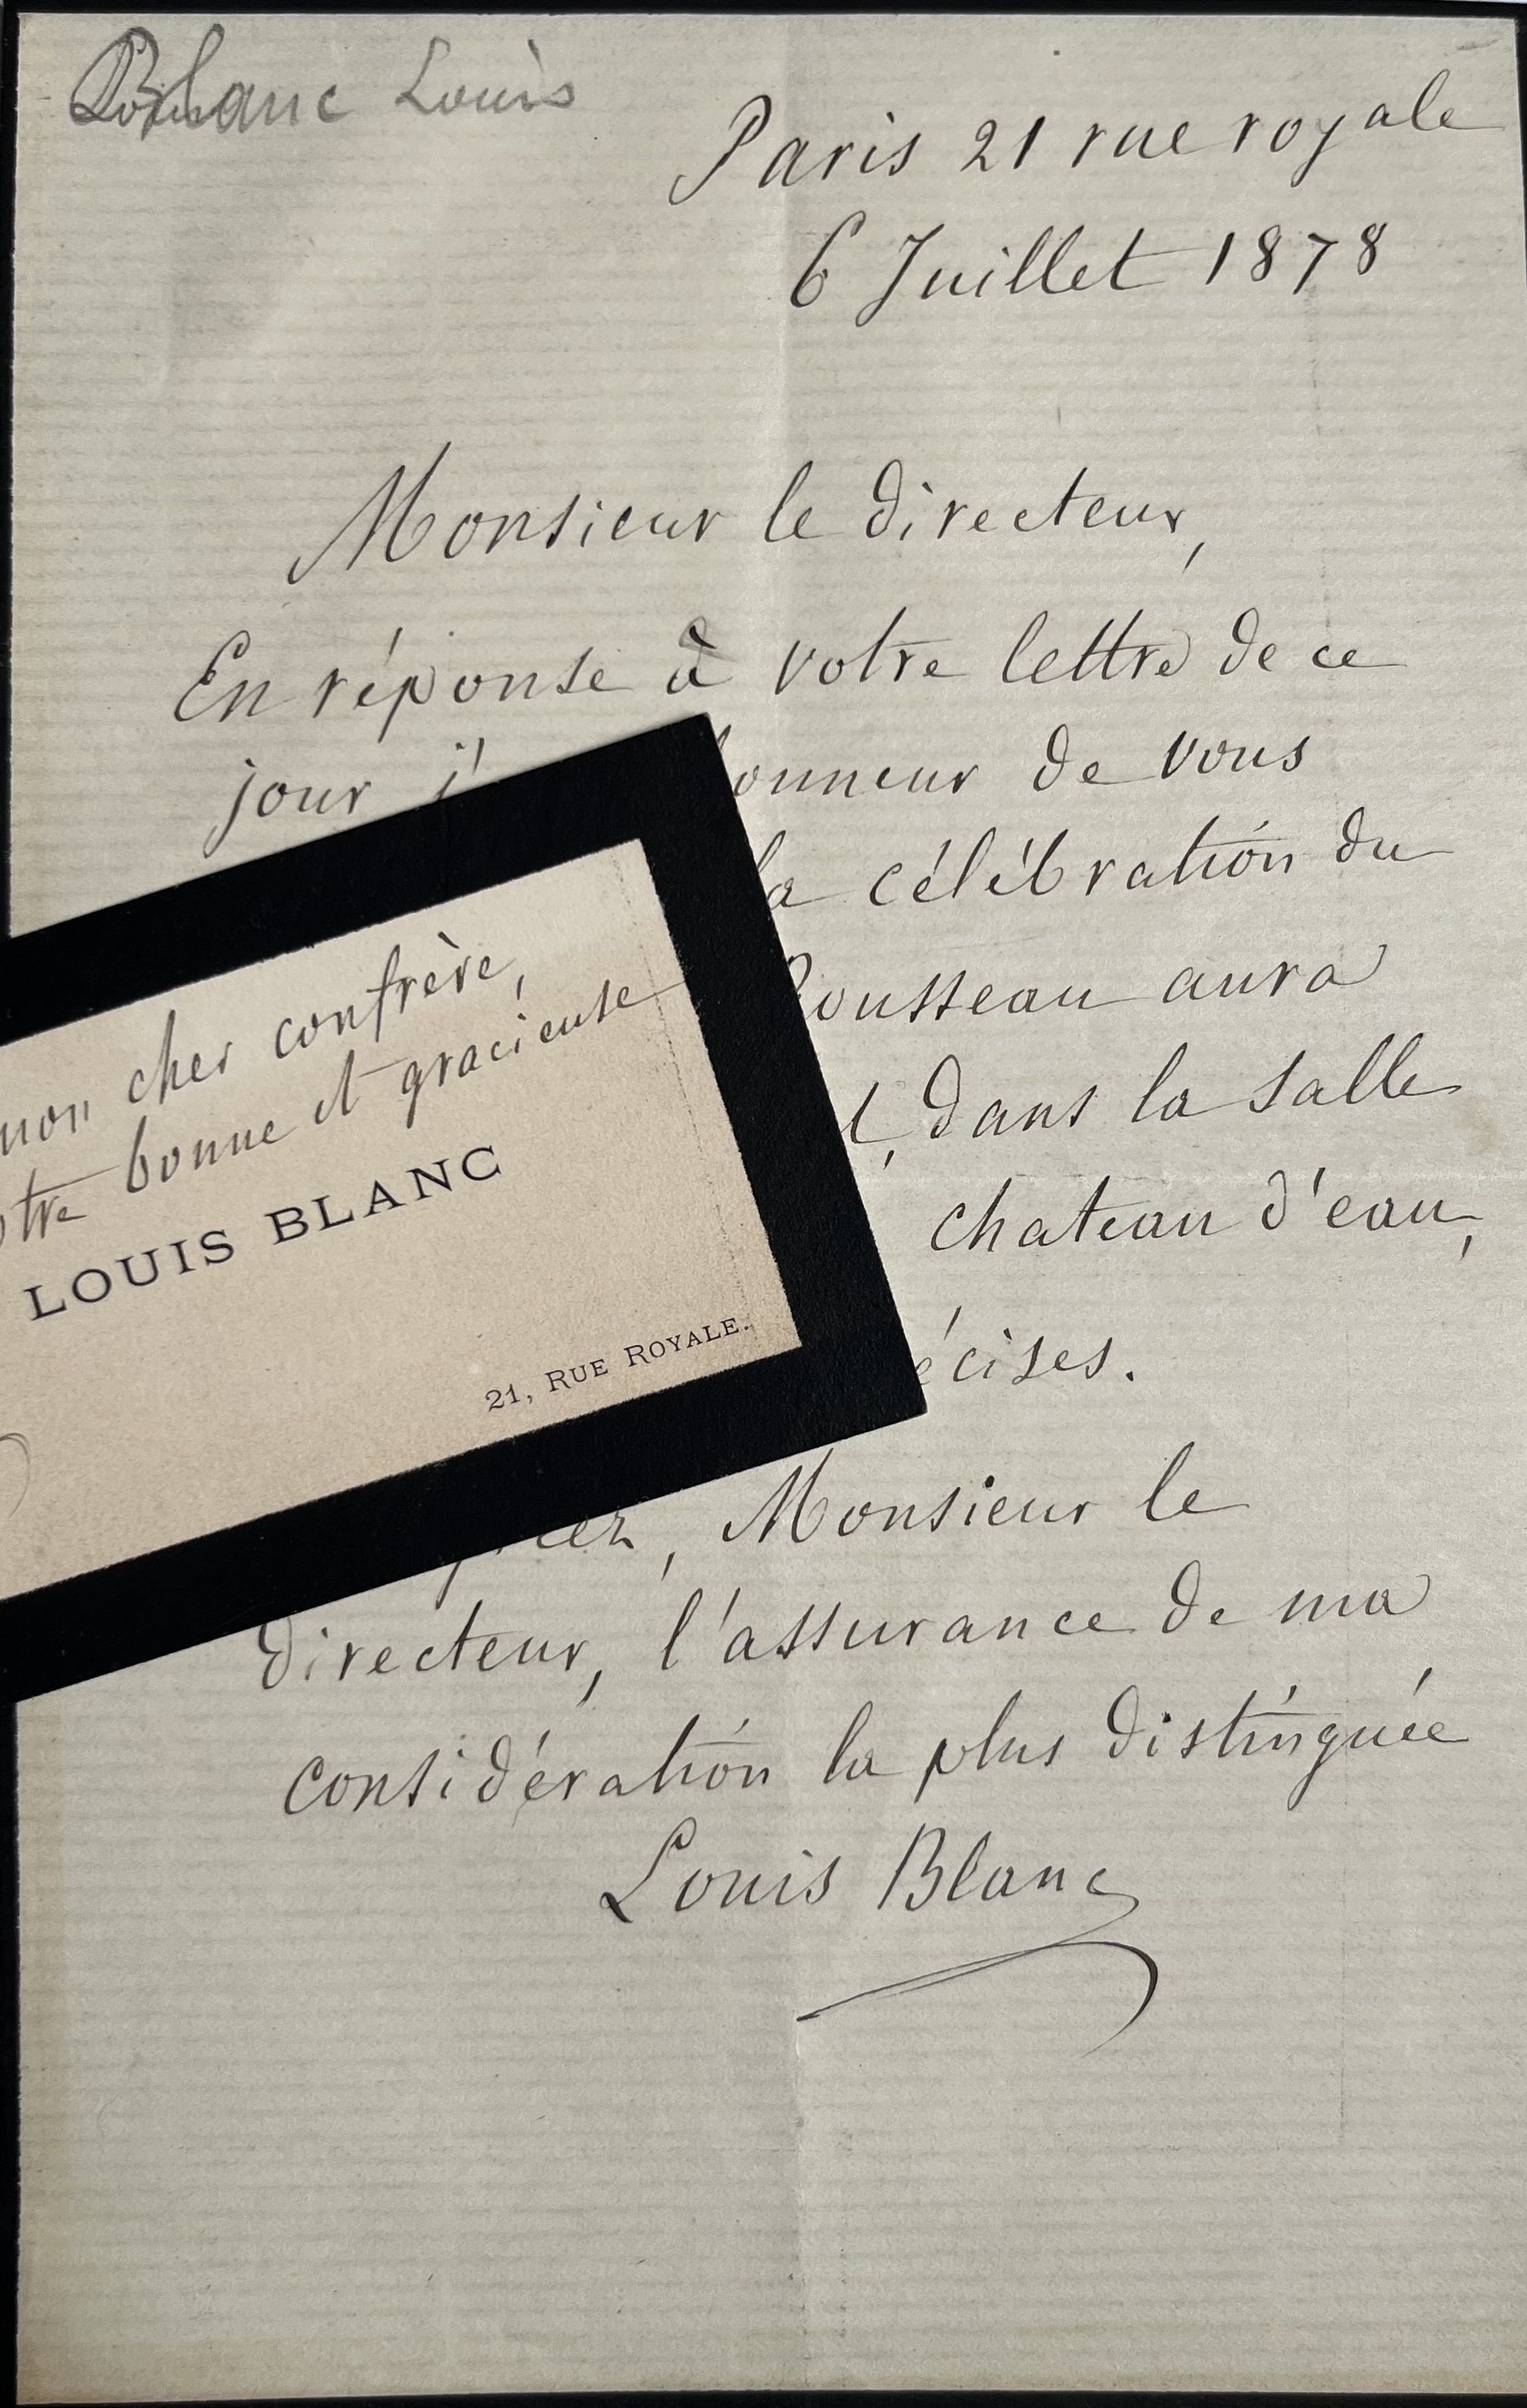 Blanc Louis
Paris 21 rue royale
6 Juillet 1878
Monsieur le directeur,
En réponse à votre lettre de ce
jour de vous
la célébration du
Rousseau aura
dans la salle
chateau d'eau,
Monsieur le
directeur, l'assurance de ma
considération la plus distinguée
Louis Blanc
mon cher confrère,
bonne et gracieuse
LOUIS BLANC
21, RUE ROYALE.